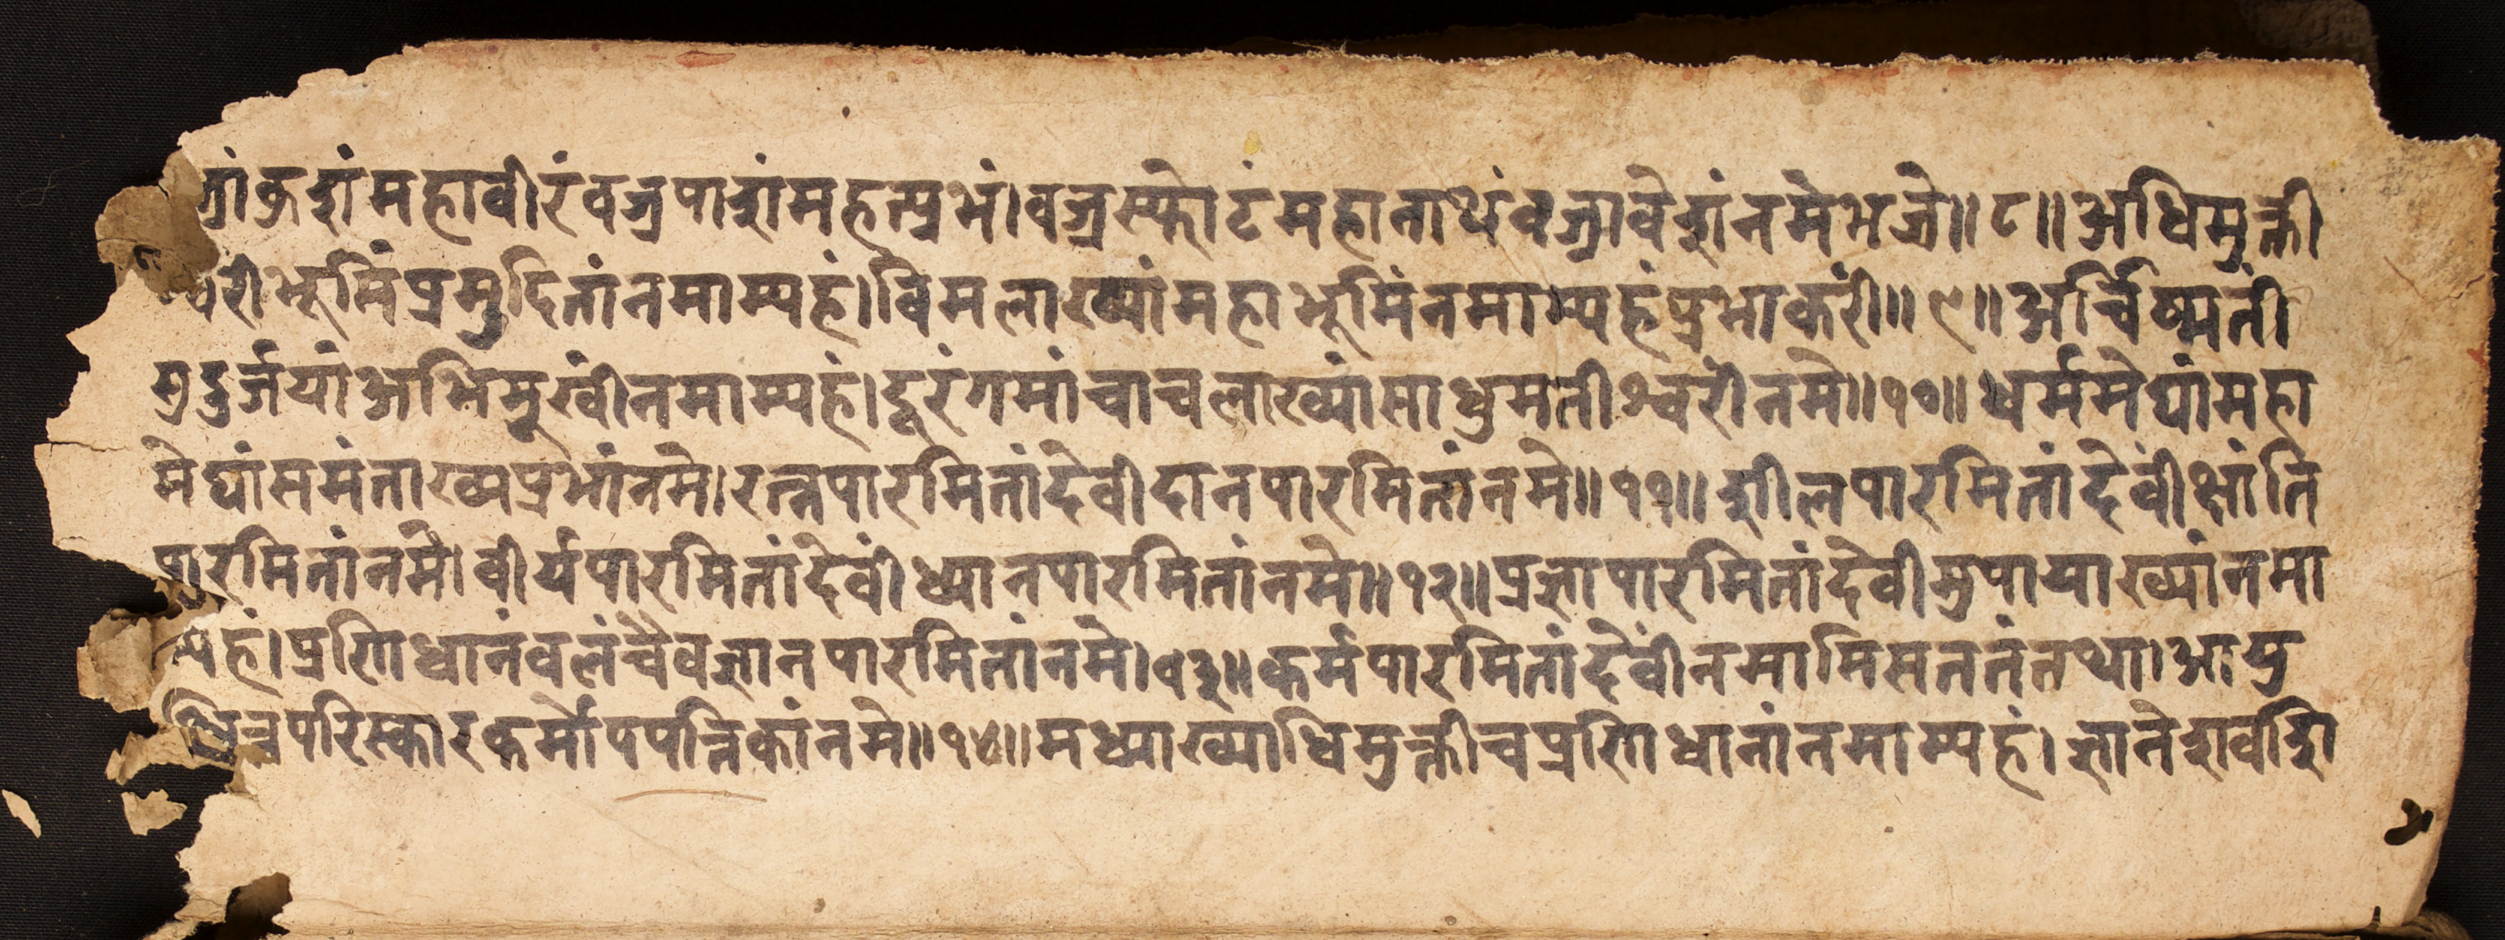 ज्रांकुशंमहावीरंवज्रपाशंमहत्प्रभं।वज्रस्फोटंमहानाथंवज्रावेशंनमेभजे॥८॥अधिमुक्ती
श्वरींभूमिंप्रमुदितांनमाम्यहं।विमलाख्यांमहाभूमिंनमाम्यहंप्रभाकरीं॥९॥अर्चिष्मतीं
सुदुर्जयांअभिमुखींनमाम्यहं।दूरंगमांचाचलाख्यांसाधुमतीश्वरींनमे॥१०॥धर्ममेघांमहा
मेघांसमंताख्यप्रभांनमे।रत्नपारमितांदेवीदानपारमितांनमे॥११॥शीलपारमितांदेवींक्षांति
पारमितांनमे।वीर्यपारमितांदेवींध्यानपारमितांनमे॥१२॥प्रज्ञापारमितांदेवीमुपायाख्यांनमा
म्यहं।प्रणिधानंवलंचैवज्ञानपारमितांनमे।१३॥कर्मपारमितांदेवींनमामिसततंतथा।आयु
श्चित्तपरिस्कारकर्मोपपत्तिकांनमे॥१४॥मध्याख्याधिमुक्तीचप्रणिधानांनमाम्यहं।ज्ञानेशवशि